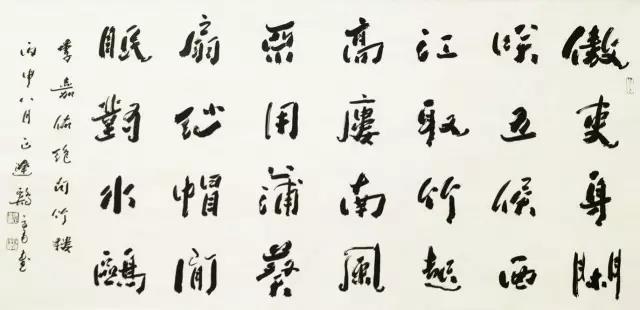 傲吏身閑
笑五侯西
江取竹起
高樓南風
用蒲葵
扇紗帽閒
眠對水鷗
李嘉佑絕句竹樓
丙申八月